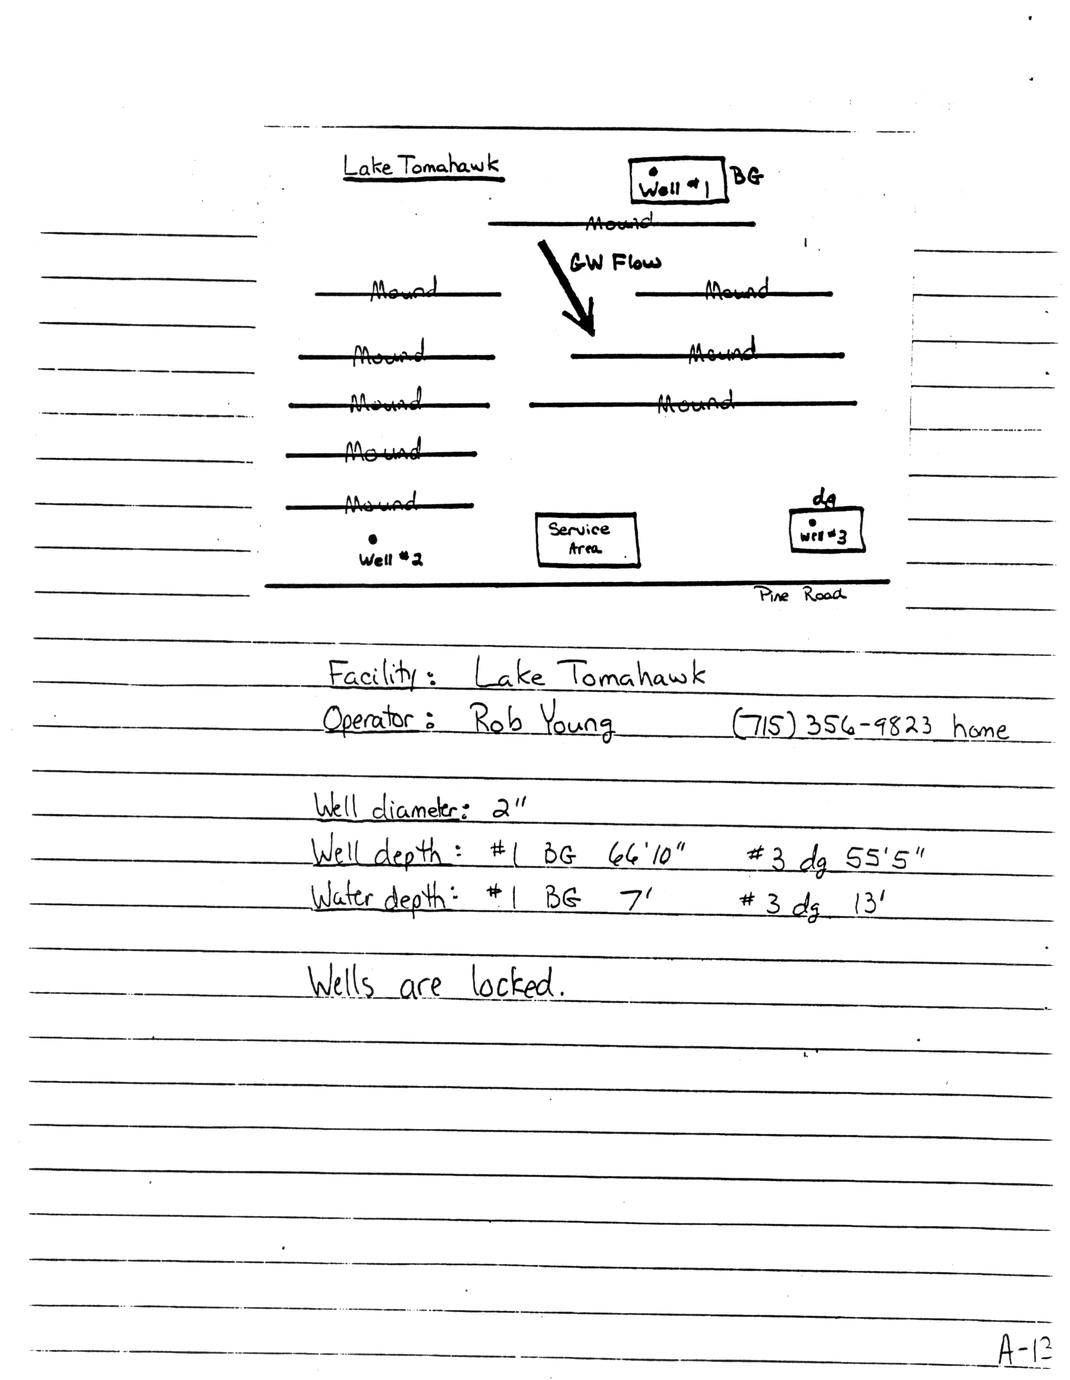 Lake Tomahawk
Well #1 BG
Mound
GW Flow
Mound Mound
Mound Mound
Mound Mound
Mound
Mound
dg
Service Area
Well #3
Well #2
Pine Road
Facility: Lake Tomahawk
Operator: Rob Young (715) 356-9823 home
Well diameter: 2"
Well depth: #1 BG 66'10" #3 dg 55'5"
Water depth: #1 BG 7' #3 dg 13'
Wells are locked.
A-13